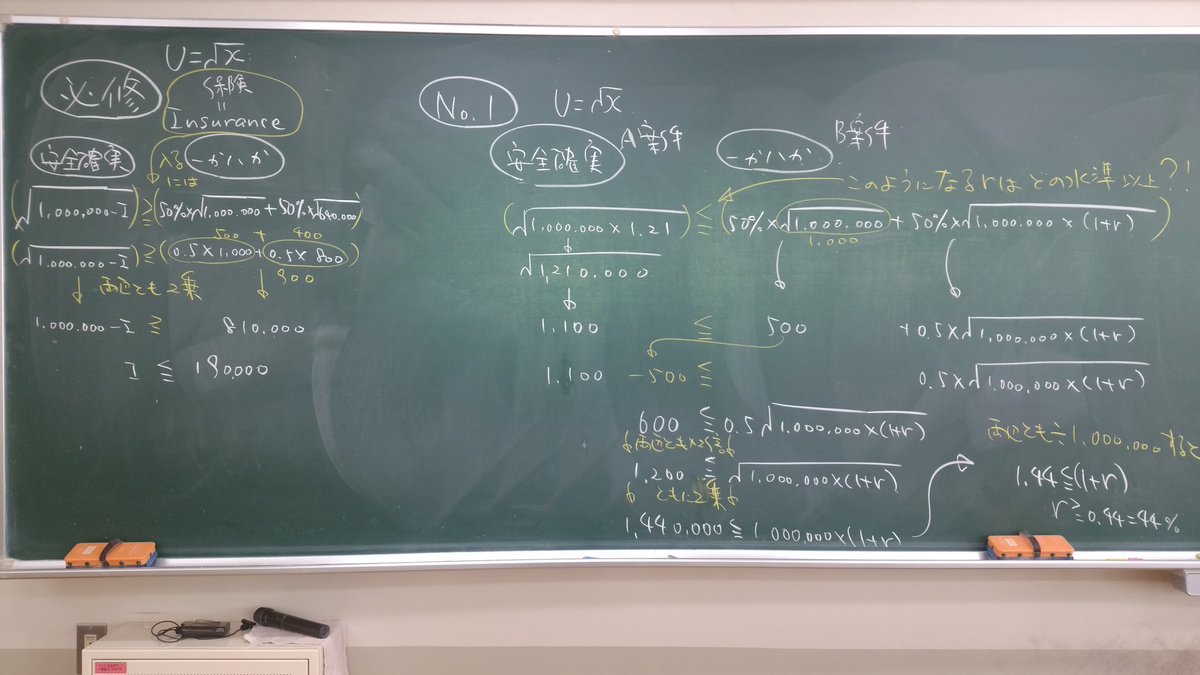 必修
U=√x
保険
=
Insurance
安全確実
入るには
一か八か
(√1,000,000-I) ≧ (50%×√1,000,000 + 50%×√640,000)
500 + 400
(√1,000,000-I) ≧ (0.5×1,000 + 0.5×800)
900
両辺とも2乗
1,000,000-I ≧ 810,000
I ≦ 190,000
No.1
U=√x
安全確実 A案件
一か八か B案件
このようになるrはどの水準以上?!
(√1,000,000×1.21) ≦ (50%×√1,000,000 + 50%×√1,000,000×(1+r))
1,000
√1,210,000
1,100 ≦ 500 +0.5×√1,000,000×(1+r)
1,100 -500 ≦ 0.5×√1,000,000×(1+r)
600 ≦ 0.5√1,000,000×(1+r)
両辺とも×2倍
1,200 ≦ √1,000,000×(1+r)
ともに2乗
1,440,000 ≦ 1,000,000×(1+r)
両辺とも÷1,000,000すると
1.44≦(1+r)
r≧0.44=44%